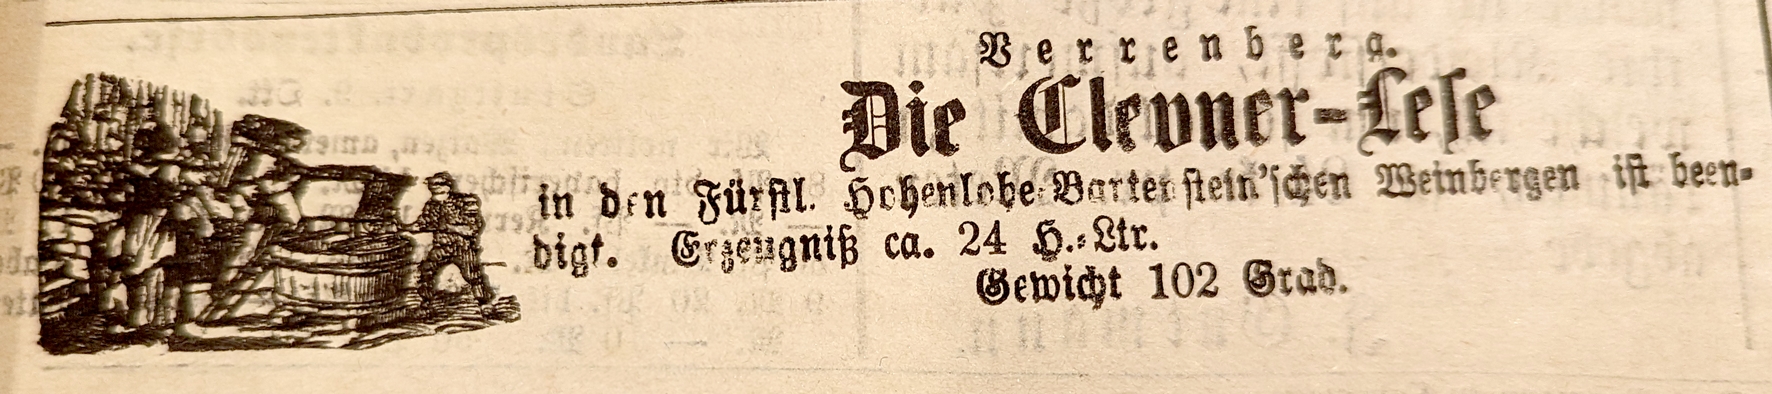 Verrenberg.
Die Clevner-Lese
in den Fürstl. Hohenlohe-Bartenstein'schen Weinbergen ist been-
digt. Erzeugniß ca. 24 H.-Ltr.
Gewicht 102 Grad.